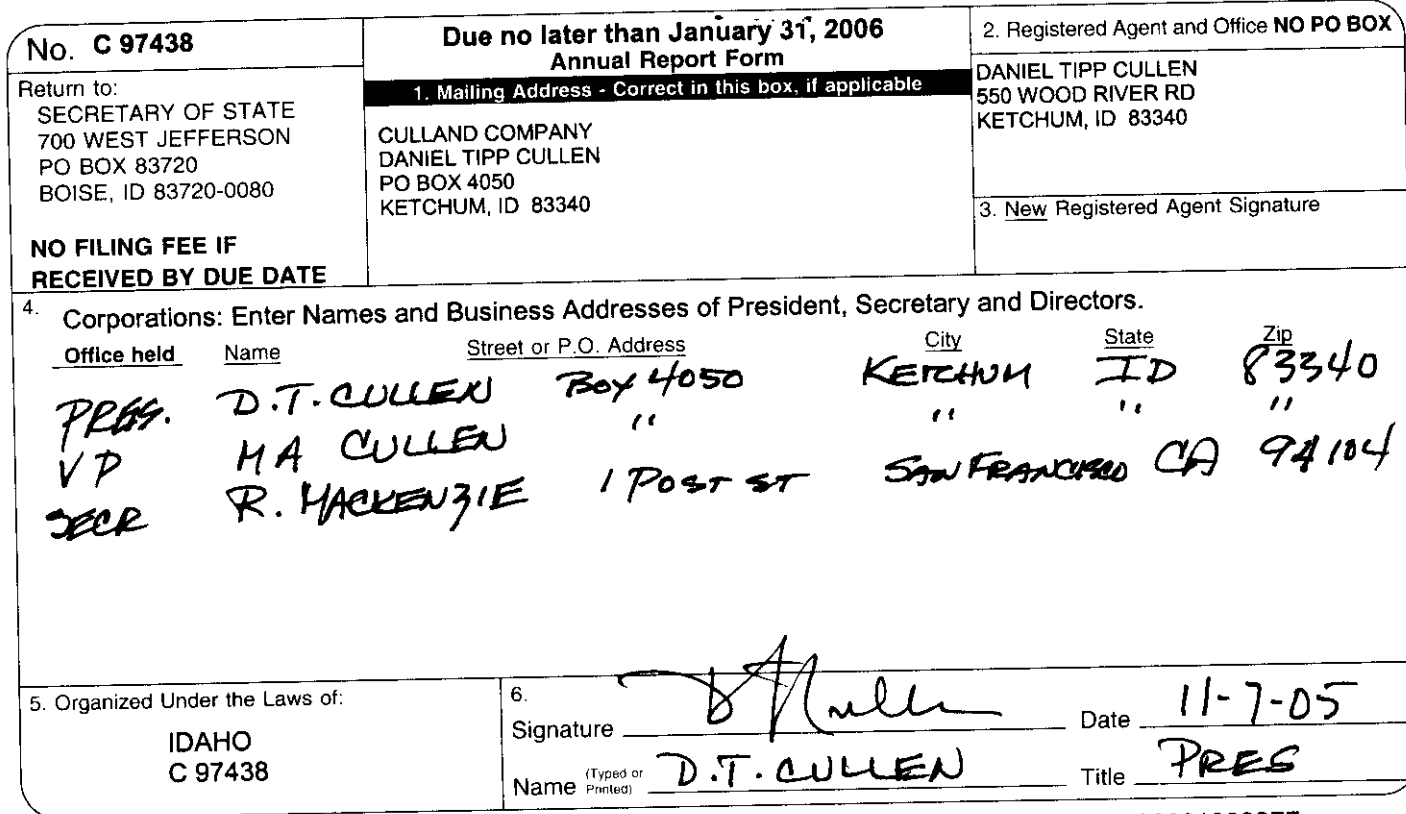 No. C 97438
Return to:
SECRETARY OF STATE
700 WEST JEFFERSON
PO BOX 83720
BOISE, ID 83720-0080
NO FILING FEE IF
RECEIVED BY DUE DATE
Due no later than January 31, 2006
Annual Report Form
1. Mailing Address - Correct in this box, if applicable
CULLAND COMPANY
DANIEL TIPP CULLEN
PO BOX 4050
KETCHUM, ID 83340
2. Registered Agent and Office NO PO BOX
DANIEL TIPP CULLEN
550 WOOD RIVER RD
KETCHUM, ID 83340
3. New Registered Agent Signature
4. Corporations: Enter Names and Business Addresses of President, Secretary and Directors.
Office held Name Street or P.O. Address City State Zip
PRES. D.T. CULLEN BOX 4050 KETCHUM ID 83340
VP MA CULLEN " " " "
SECR R. MACKENZIE 1 POST ST SAN FRANCISCO CA 94104
5. Organized Under the Laws of:
IDAHO
C 97438
6.
Signature Date 11-7-05
Name (Typed or Printed) D.T. CULLEN Title PRES